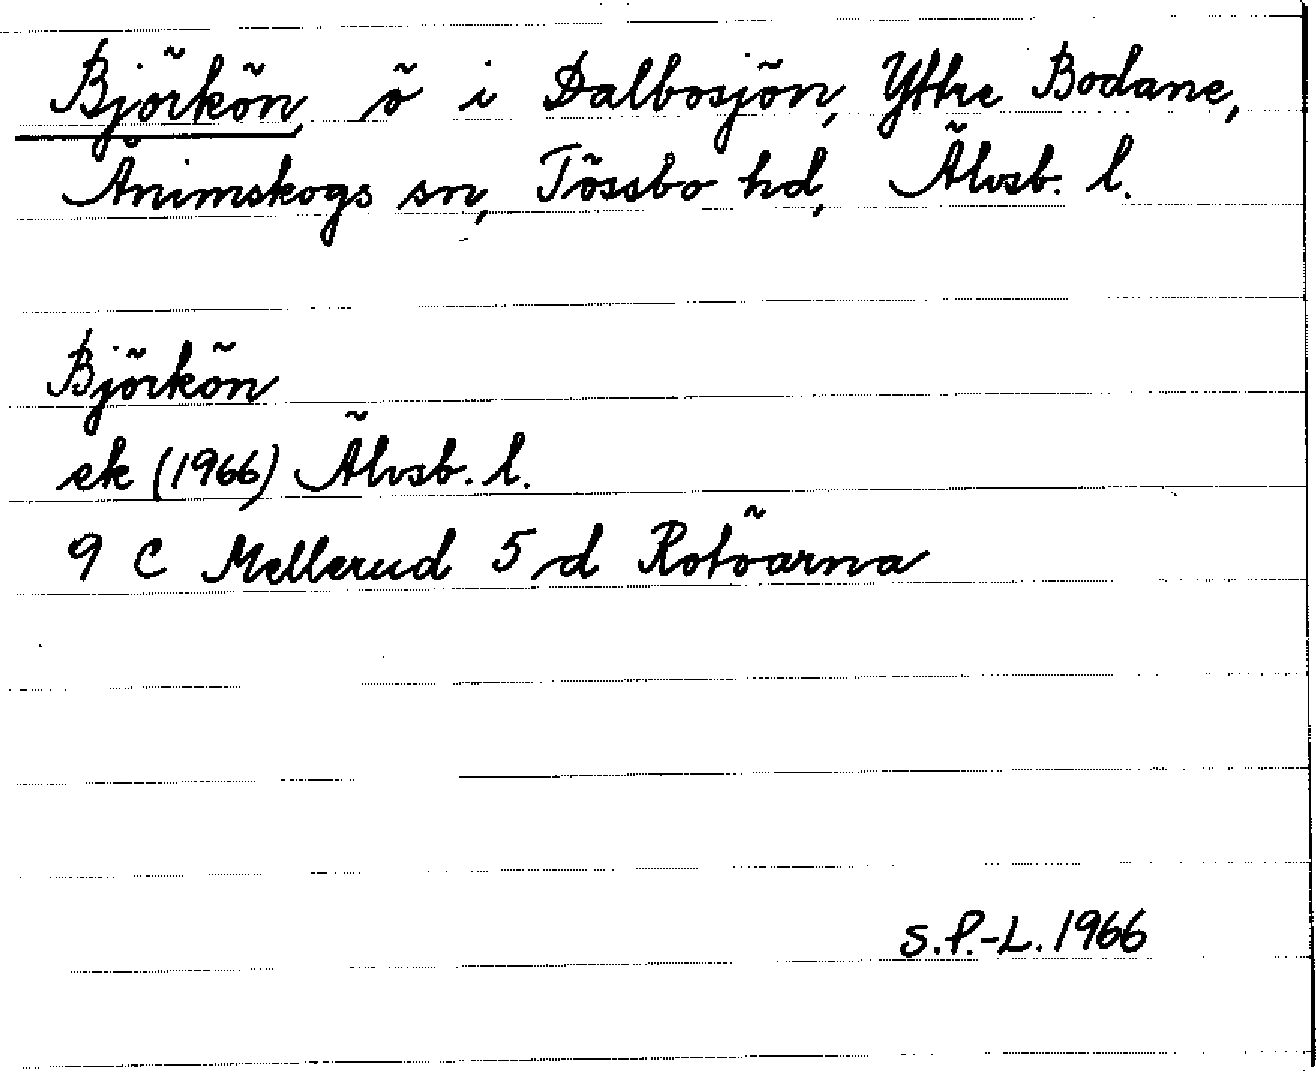 Björkön, ö i Dalbosjön, Yttre Bodane,
Ånimskogs sn, Tössbo hd, Älvsb. l.
Björkön
ek (1966) Älvsb. l.
9 C Mellerud 5 d Rotöarna
S.P.-L. 1966